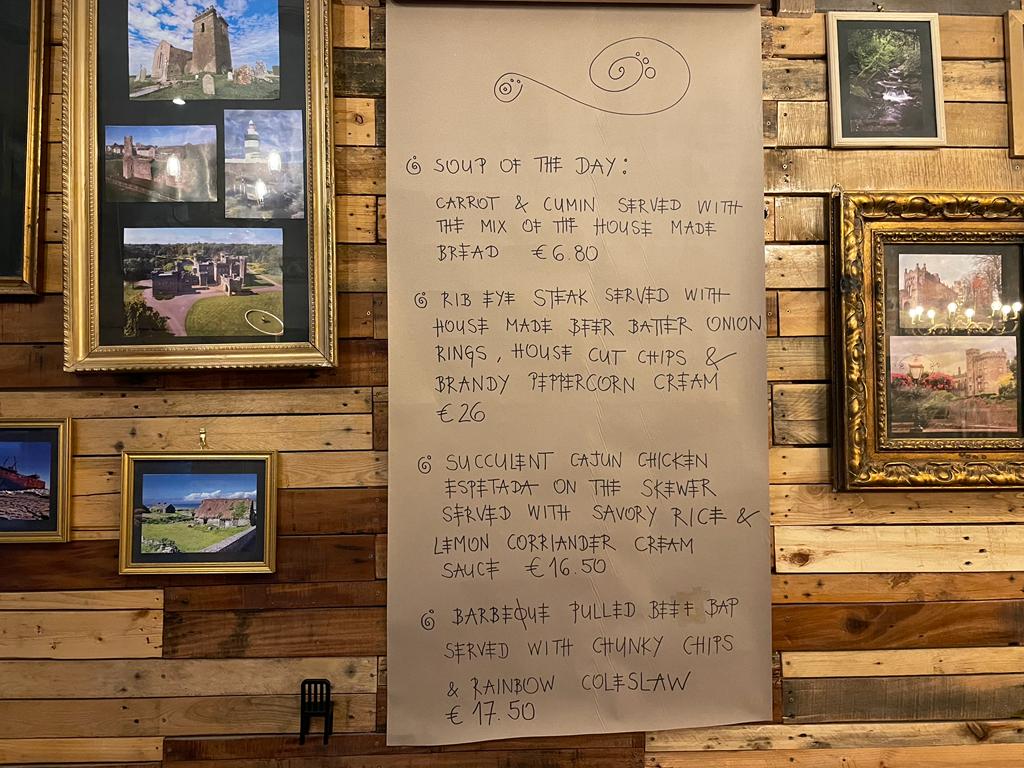 SOUP OF THE DAY:
CARROT & CUMIN SERVED WITH
THE MIX OF THE HOUSE MADE
BREAD €6.80
RIB EYE STEAK SERVED WITH
HOUSE MADE BEER BATTER ONION
RINGS, HOUSE CUT CHIPS &
BRANDY PEPPERCORN CREAM
€26
SUCCULENT CAJUN CHICKEN
ESPETADA ON THE SKEWER
SERVED WITH SAVORY RICE &
LEMON CORRIANDER CREAM
SAUCE €16.50
BARBEQUE PULLED BEEF BAP
SERVED WITH CHUNKY CHIPS
& RAINBOW COLESLAW
€17.50